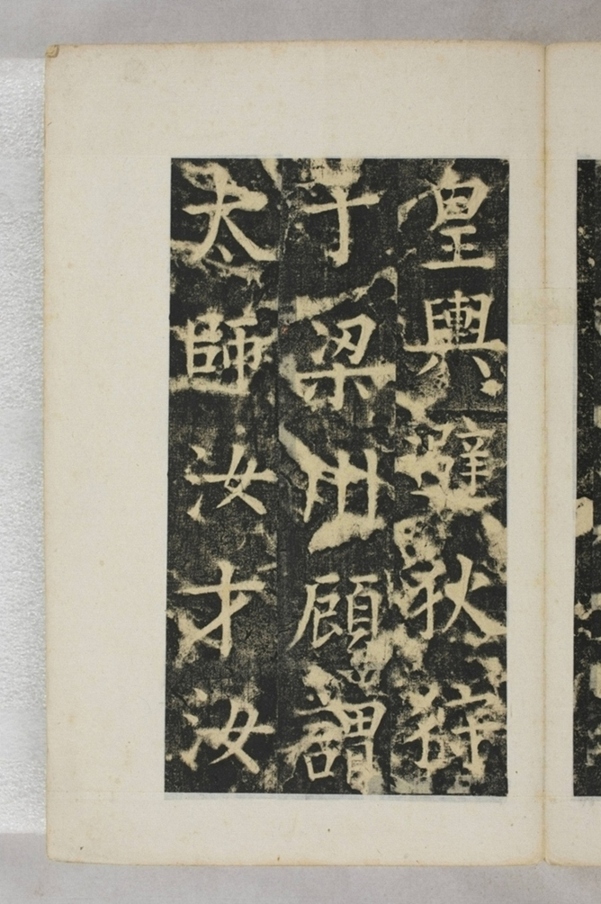 皇輿避狄狩
于梁州顧謂
太師汝才汝